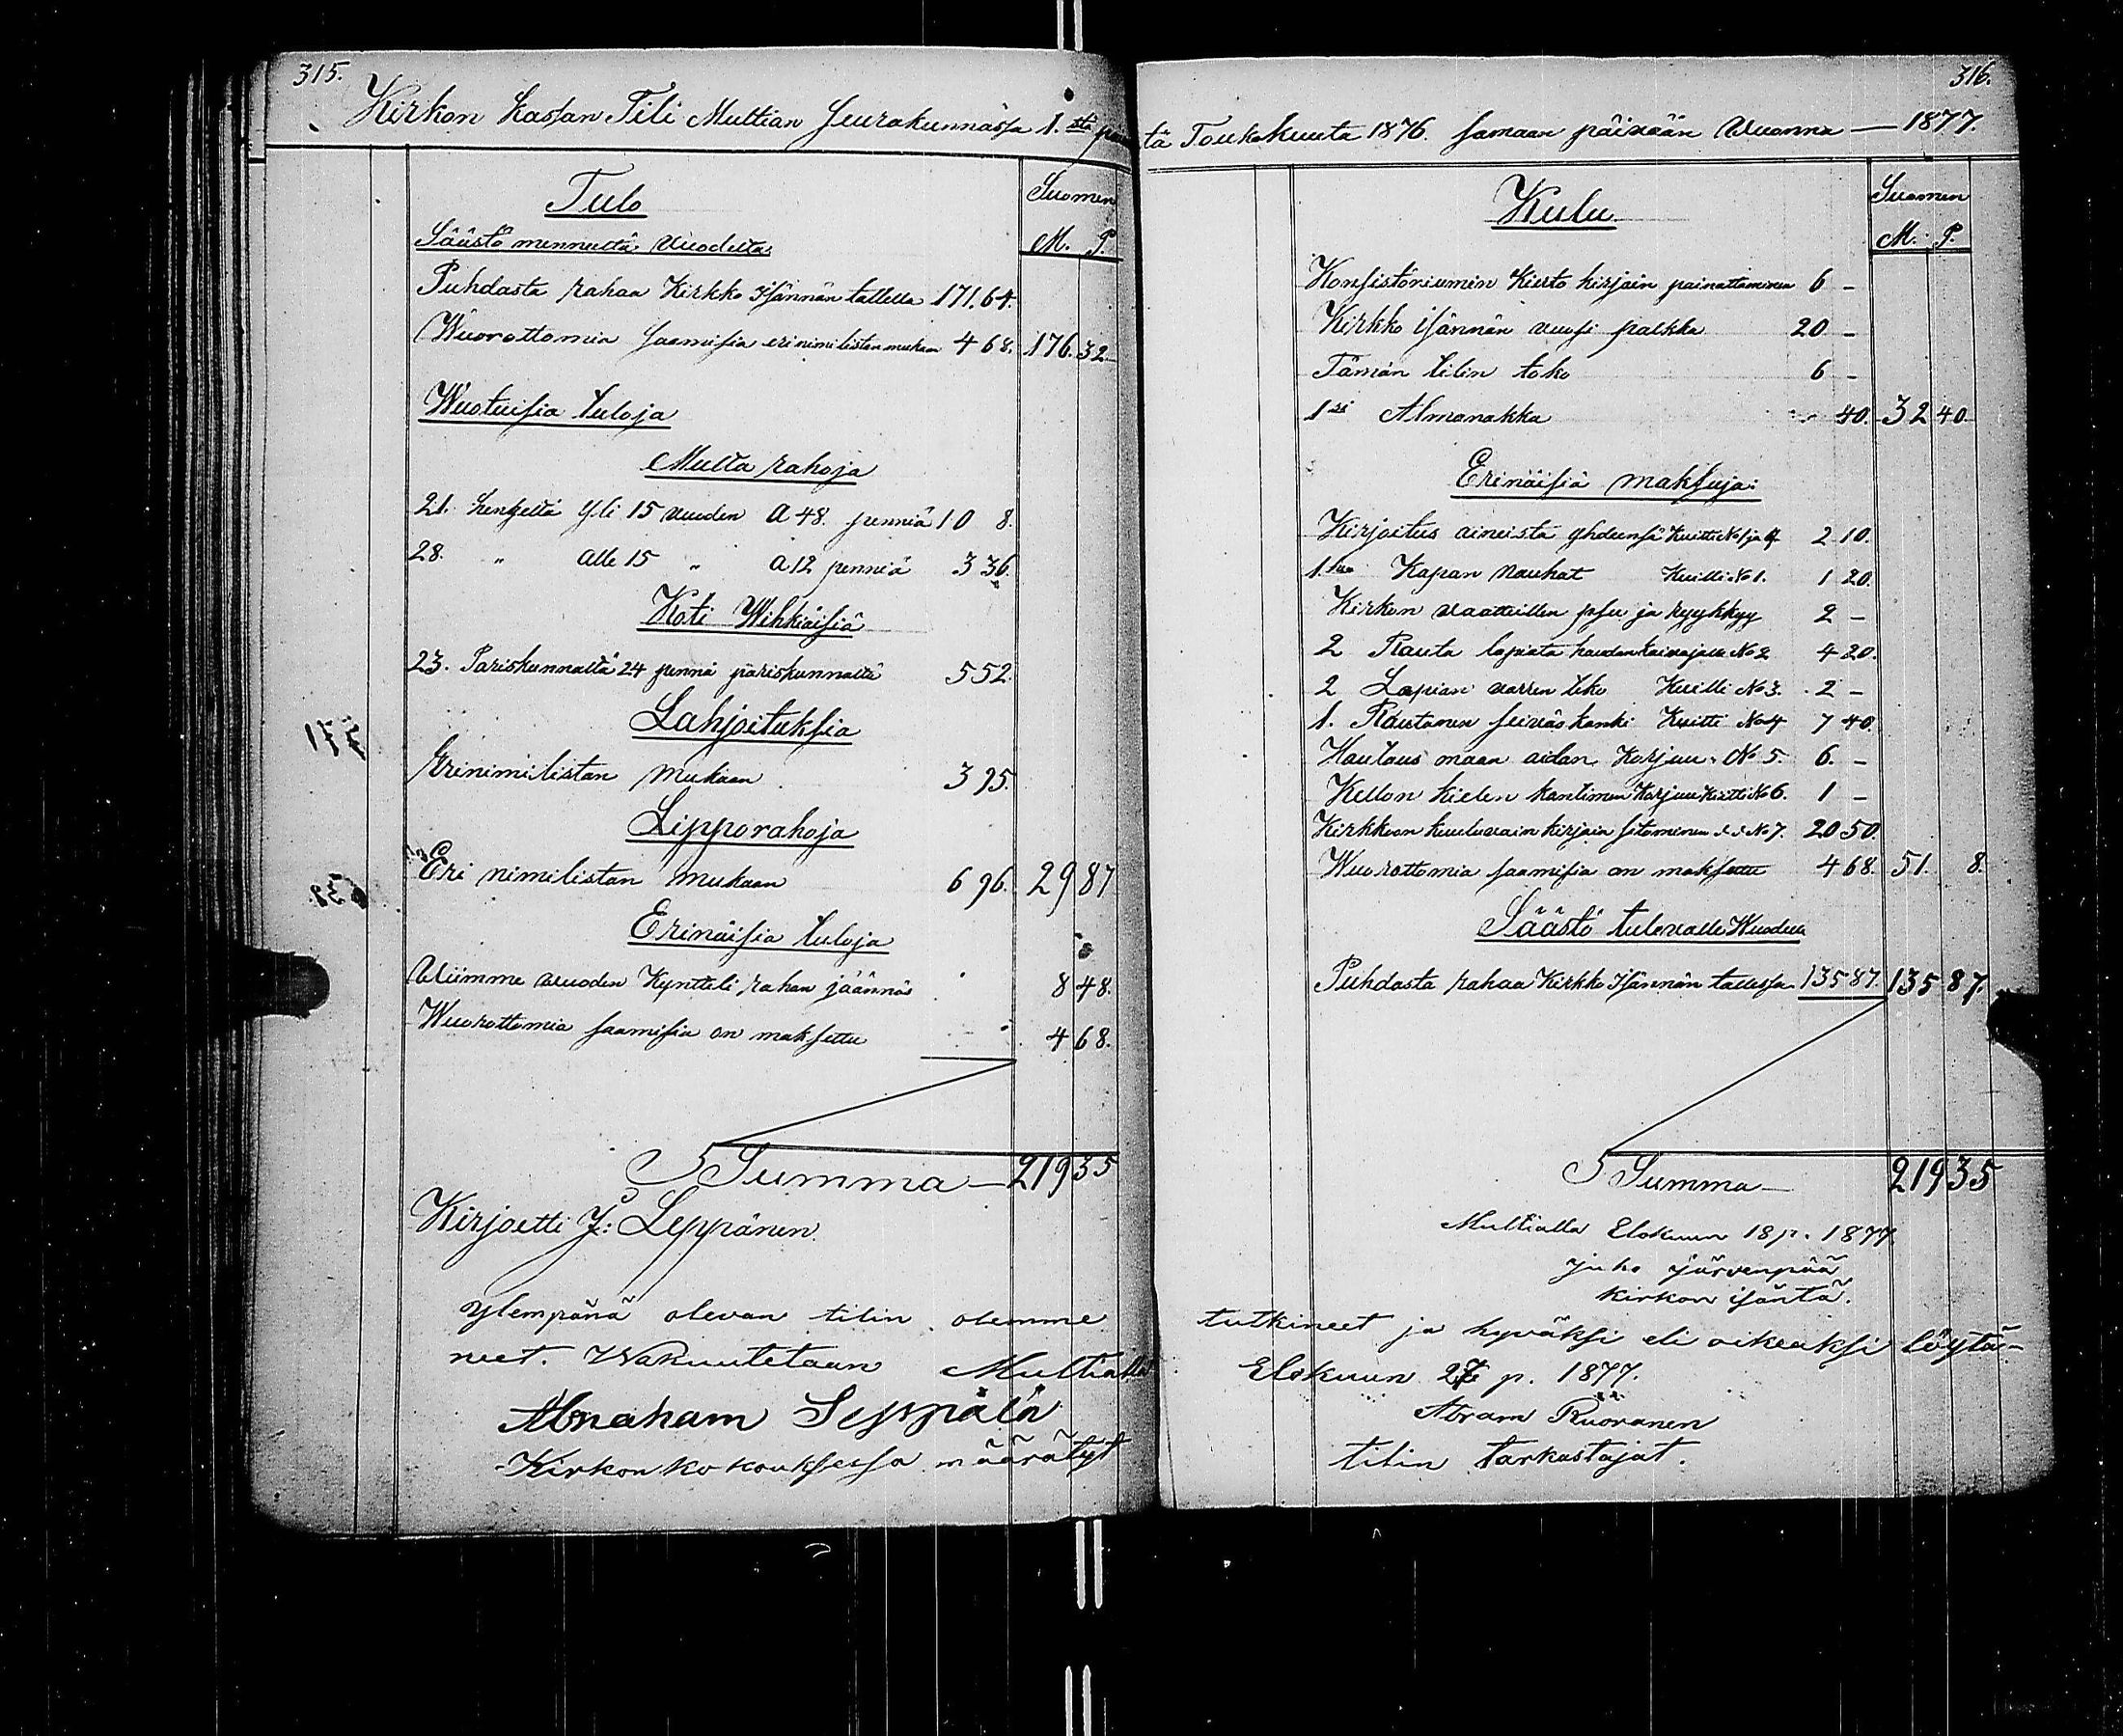 315.
Kirkon kassan Tili Multian Seurakunnassa 1.stä
Tulo
Suomen
M. P.
Säästö menneeltä vuodelta
Puhdasta rahaa Kirkko Isännän tallella 171.64.
Wuorottomia saamisia eri nimi listan mukaan 4 68. 176.32.
Wuotuisia tuloja
Multa rahoja
21. hengeltä yli 15 vuoden a 48. penniä 10 8.
28. " alle 15 " a 12 penniä 3 36.
Koti Wihkiäisiä
23. Pariskunnalta 24 penniä päriskunnalta 5 52.
Lahjoituksia
Erinimilistan mukaan 3 95.
Lipporahoja
Eri nimilistan mukaan 6 96. 29 87
Erinäisia tuloja
Viimme vuoden Kyntteli rahan jäännös 8 48.
Wuorottomia saamisia on maksettu 4 68.
Summa 219 35
Kirjoetti J: Leppänen.
Ylempänä olevan tilin olemme
neet. Wakuutetaan Multialla
Abraham Seppälä
Kirkon kokouksessa määrätyt
316.
tä Toukokuuta 1876. samaan päivään Vuonna — 1877.
Kulu
Suomen
M. P.
Konsistoriumin Kierto kirjain painattaminen 6 -
Kirkko isännän vuosi palkka 20 -
Tämän tilin teko 6 -
1si Almanakka 40. 32 40
Erinäisiä maksuja:
Kirjoitus aineista yhdeensä Kuitti No 1 ja 2 10.
1. Kapan nauhat Kuitti No 1. 1 20.
Kirkon vaatteillen psu ja ryykkyy 2 -
2 Rauta lapiata haudan kaivajalle No 2 4 20.
2 Lapian varren teko Kuitti No 3. 2 -
1. Rautanen seiväs kanki Kuitti No 4 7 40.
Hautaus maan aidan Korjuu No 5. 6. -
Kellon kielen kantimen Korjuu Kuitti No 6. 1 -
Kirkkoon kuuluvain kirjain sitominen No 7. 20 50.
Wuorottomia saamisia on maksettu 4 68. 51. 8.
Säästö tulevalle Wuodelle
Puhdasta rahaa Kirkko Isännän tallessa 135 87. 135 87.
Summa 219 35
Multialla Elokuun 18 p. 1877
Juho Järvenpää
kirkon isäntä.
tutkineet ja hyväksi eli oikeaksi löytä-
Elokuun p. 1877.
Abram Ruoranen
tilin tarkastajat.